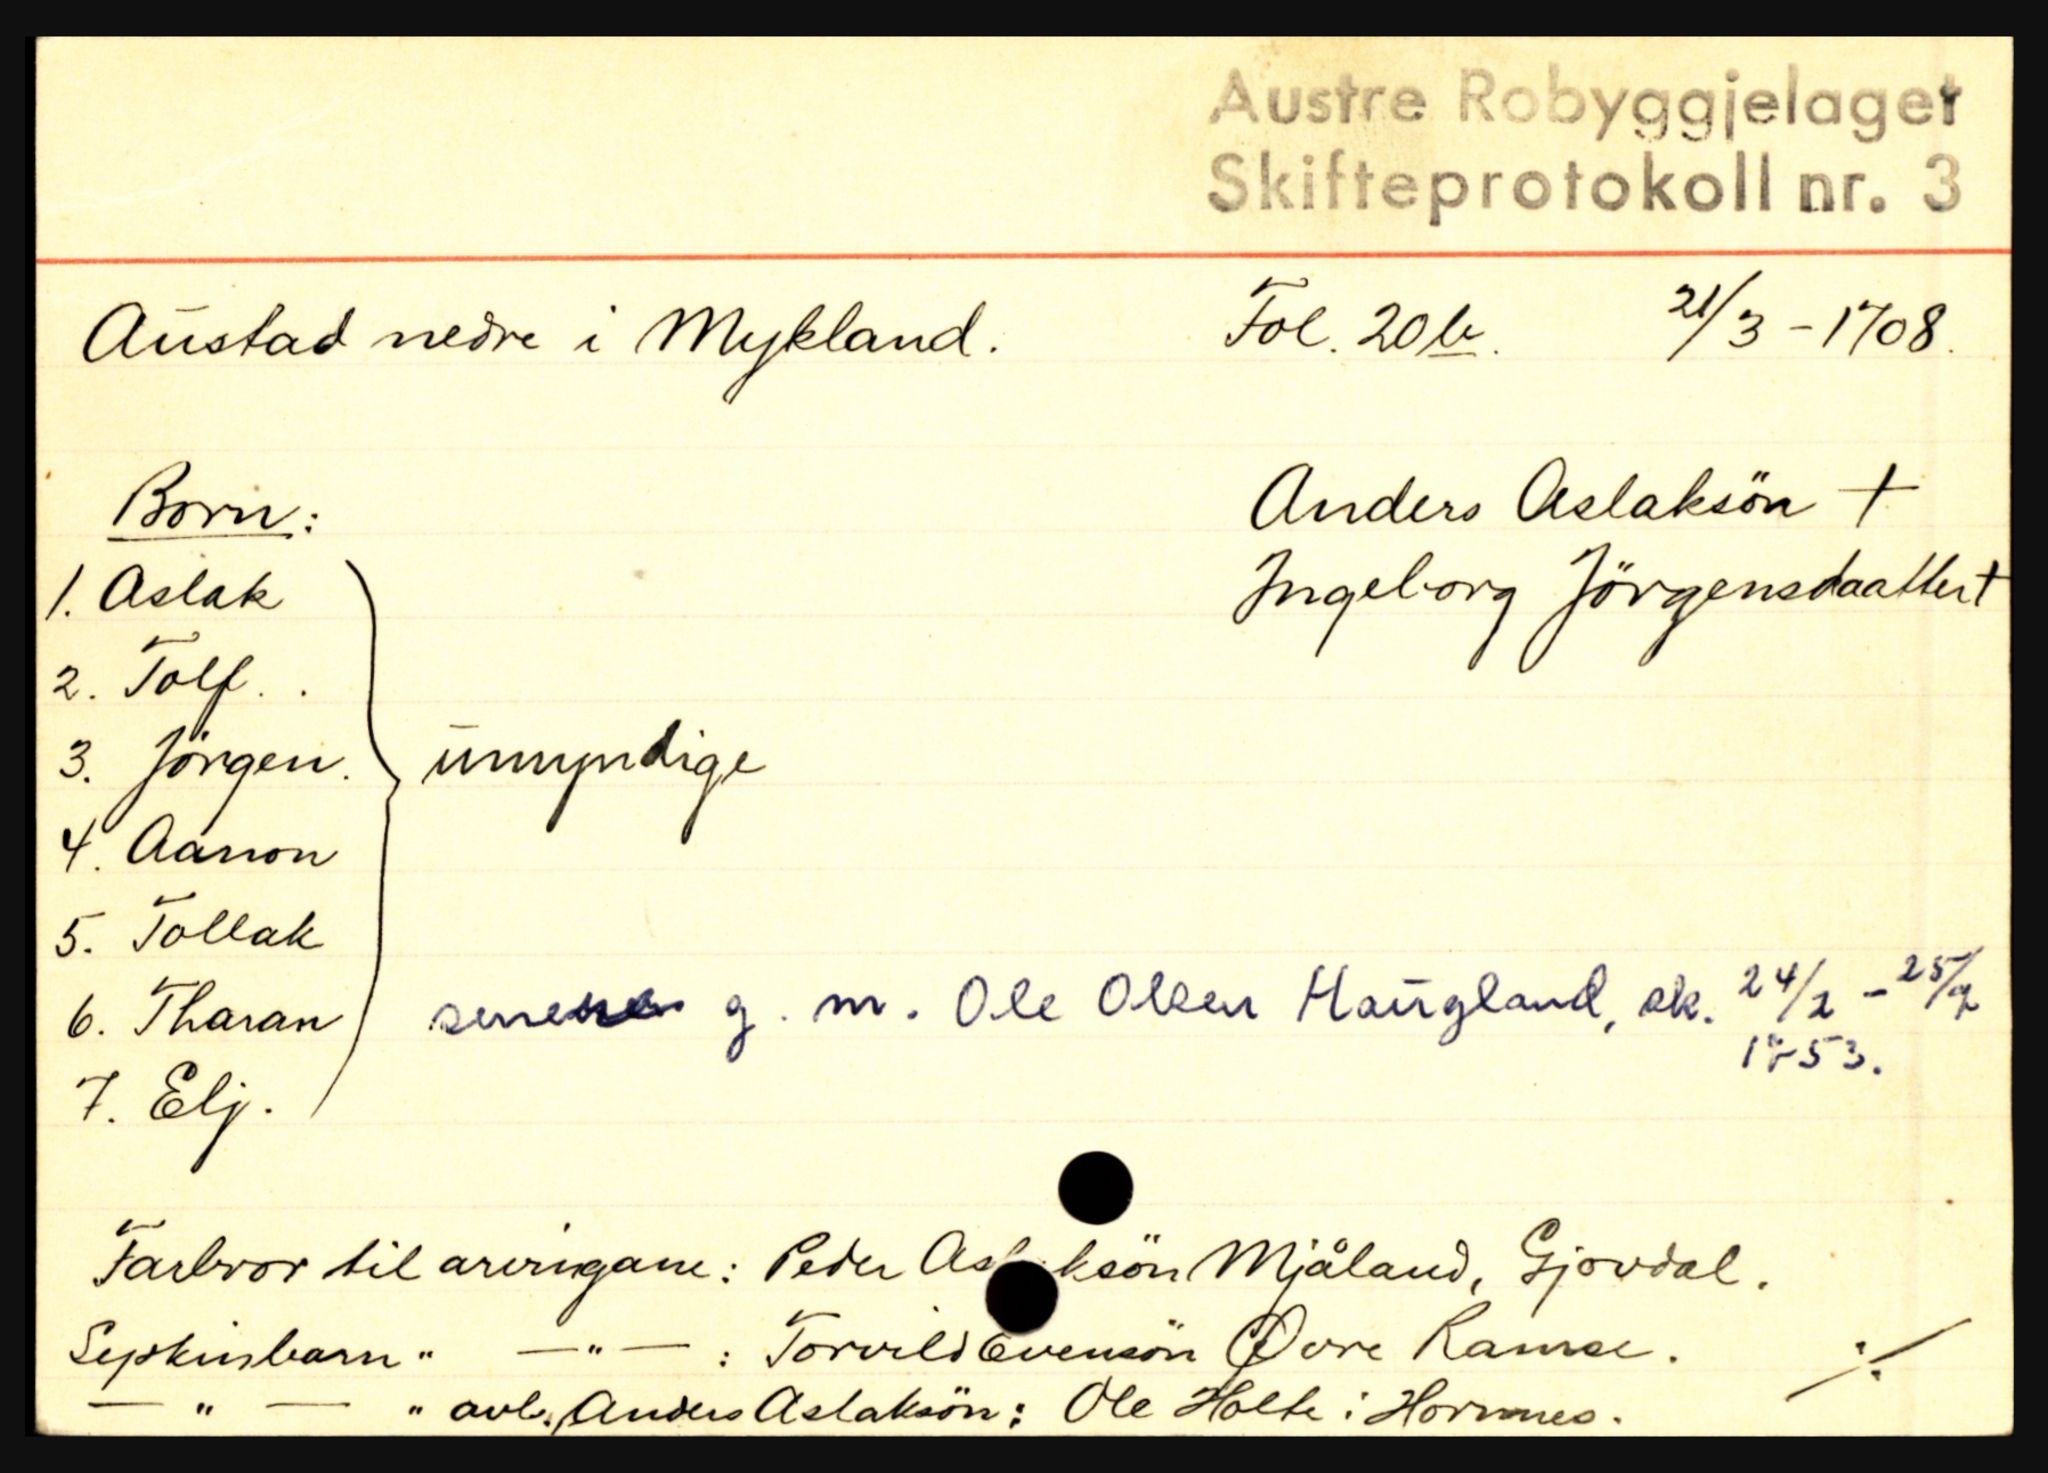 Austre Robyggjelaget
Skifteprotokoll nr. 3
Austad nedre i Mykland. Fol. 20b. 21/3 - 1708.
Born: Anders Aslaksön +
1. Aslak Ingeborg Jörgensdaatter +
2. Tolf. .
3. Jörgen. umyndige
4. Aanon
5. Tollak
6. Tharan g. m. Ole Olsen Haugland, sk. 24/2 - 25/9
1753.
7. Elj.
Farbror til arvingane: Peder Aslaksön Mjåland, Gjovdal.
Syskinbarn " — " — : Torvild Evensön Øvre Ramse. ·/·
— " — " avl. Anders Aslaksön: Ole Holte i Hornnes.